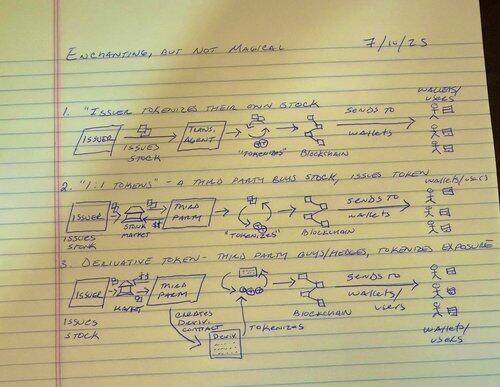 ENCHANTING, BUT NOT MAGICAL 7/10/25
1. "ISSUER TOKENIZES THEIR OWN STOCK
WALLETS/
USERS
ISSUER
ISSUES
STOCK
TRANS.
AGENT
"TOKENIZES"
BLOCKCHAIN
SENDS TO
WALLETS
2. "1:1 TOKENS" - A THIRD PARTY BUYS STOCK, ISSUES TOKEN
WALLETS/USERS
ISSUER
ISSUES
STONK
STONK
MARKET
$$
THIRD
PARTY
"TOKENIZES"
BLOCKCHAIN
SENDS TO
WALLETS
3. DERIVATIVE TOKEN - THIRD PARTY BUYS/HEDGES, TOKENIZED EXPOSURE
ISSUER
ISSUES
STOCK
$$
MARKET
THIRD
PARTY
CREATES
DERIV.
CONTRACT
DERIV.
TOKENIZES
BLOCKCHAIN
SENDS TO
WALLETS/
USERS
WALLETS/
USERS